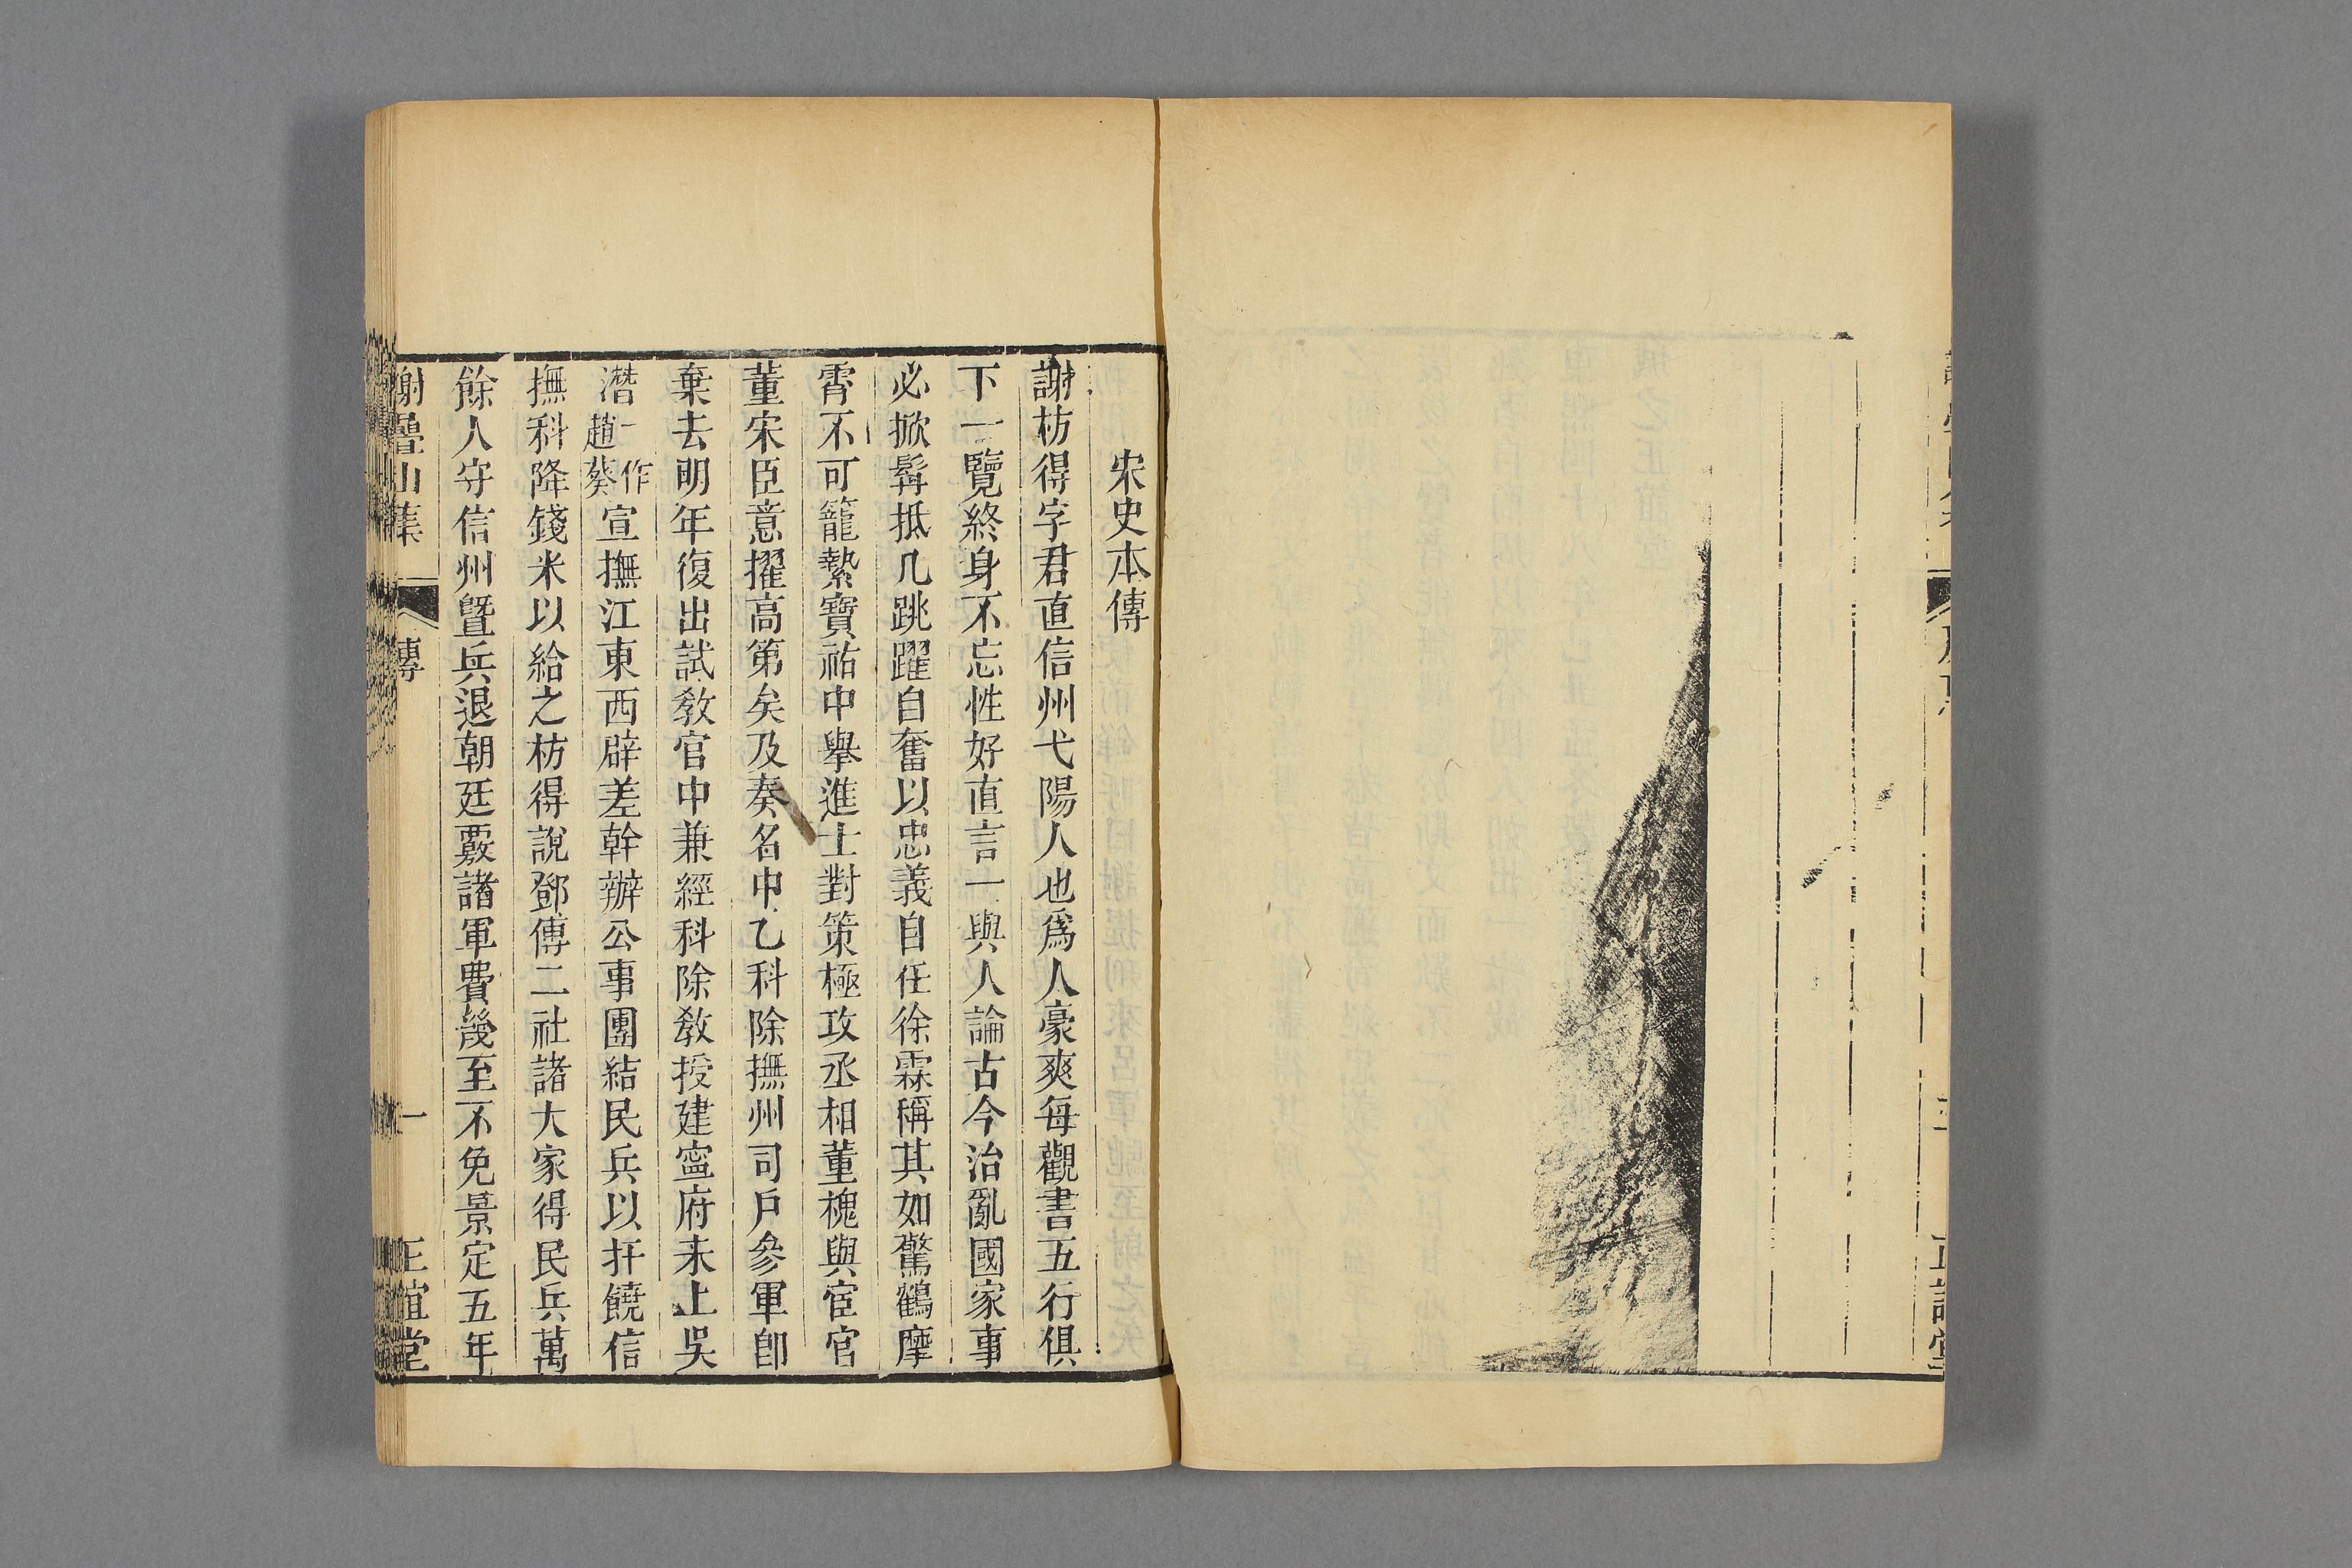 宋史本傳
謝枋得字君直信州弋陽人也爲人豪爽每觀書五行俱
下一覽終身不忘性好直言一與人論古今治亂國家事
必掀髯抵几跳躍自奮以忠義自任徐霖稱其如驚鶴摩
霄不可籠縶寶祐中舉進士對策極攻丞相董槐與宦官
董宋臣意擢高第矣及奏名中乙科除撫州司戶參軍卽
棄去明年復出試敎官中兼經科除敎授建寧府未上吳
潛一作趙葵宣撫江東西辟差幹辦公事團結民兵以扞饒信
撫科降錢米以給之枋得說鄧傳二社諸大家得民兵萬
餘人守信州暨兵退朝廷覈諸軍費幾至不免景定五年
謝疊山集 傳 一 正誼堂